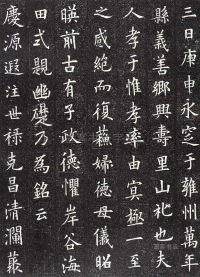 三日庚申永窆于雍州萬年
縣義善鄉興壽里山祔也夫
人孝于惟孝率由冥極一至
之感絕而復蘇婦德母儀昭
暎前古有子政德懼岸谷海
田式題幽礎乃為銘云
慶源遐注世祿克昌清瀾蘂